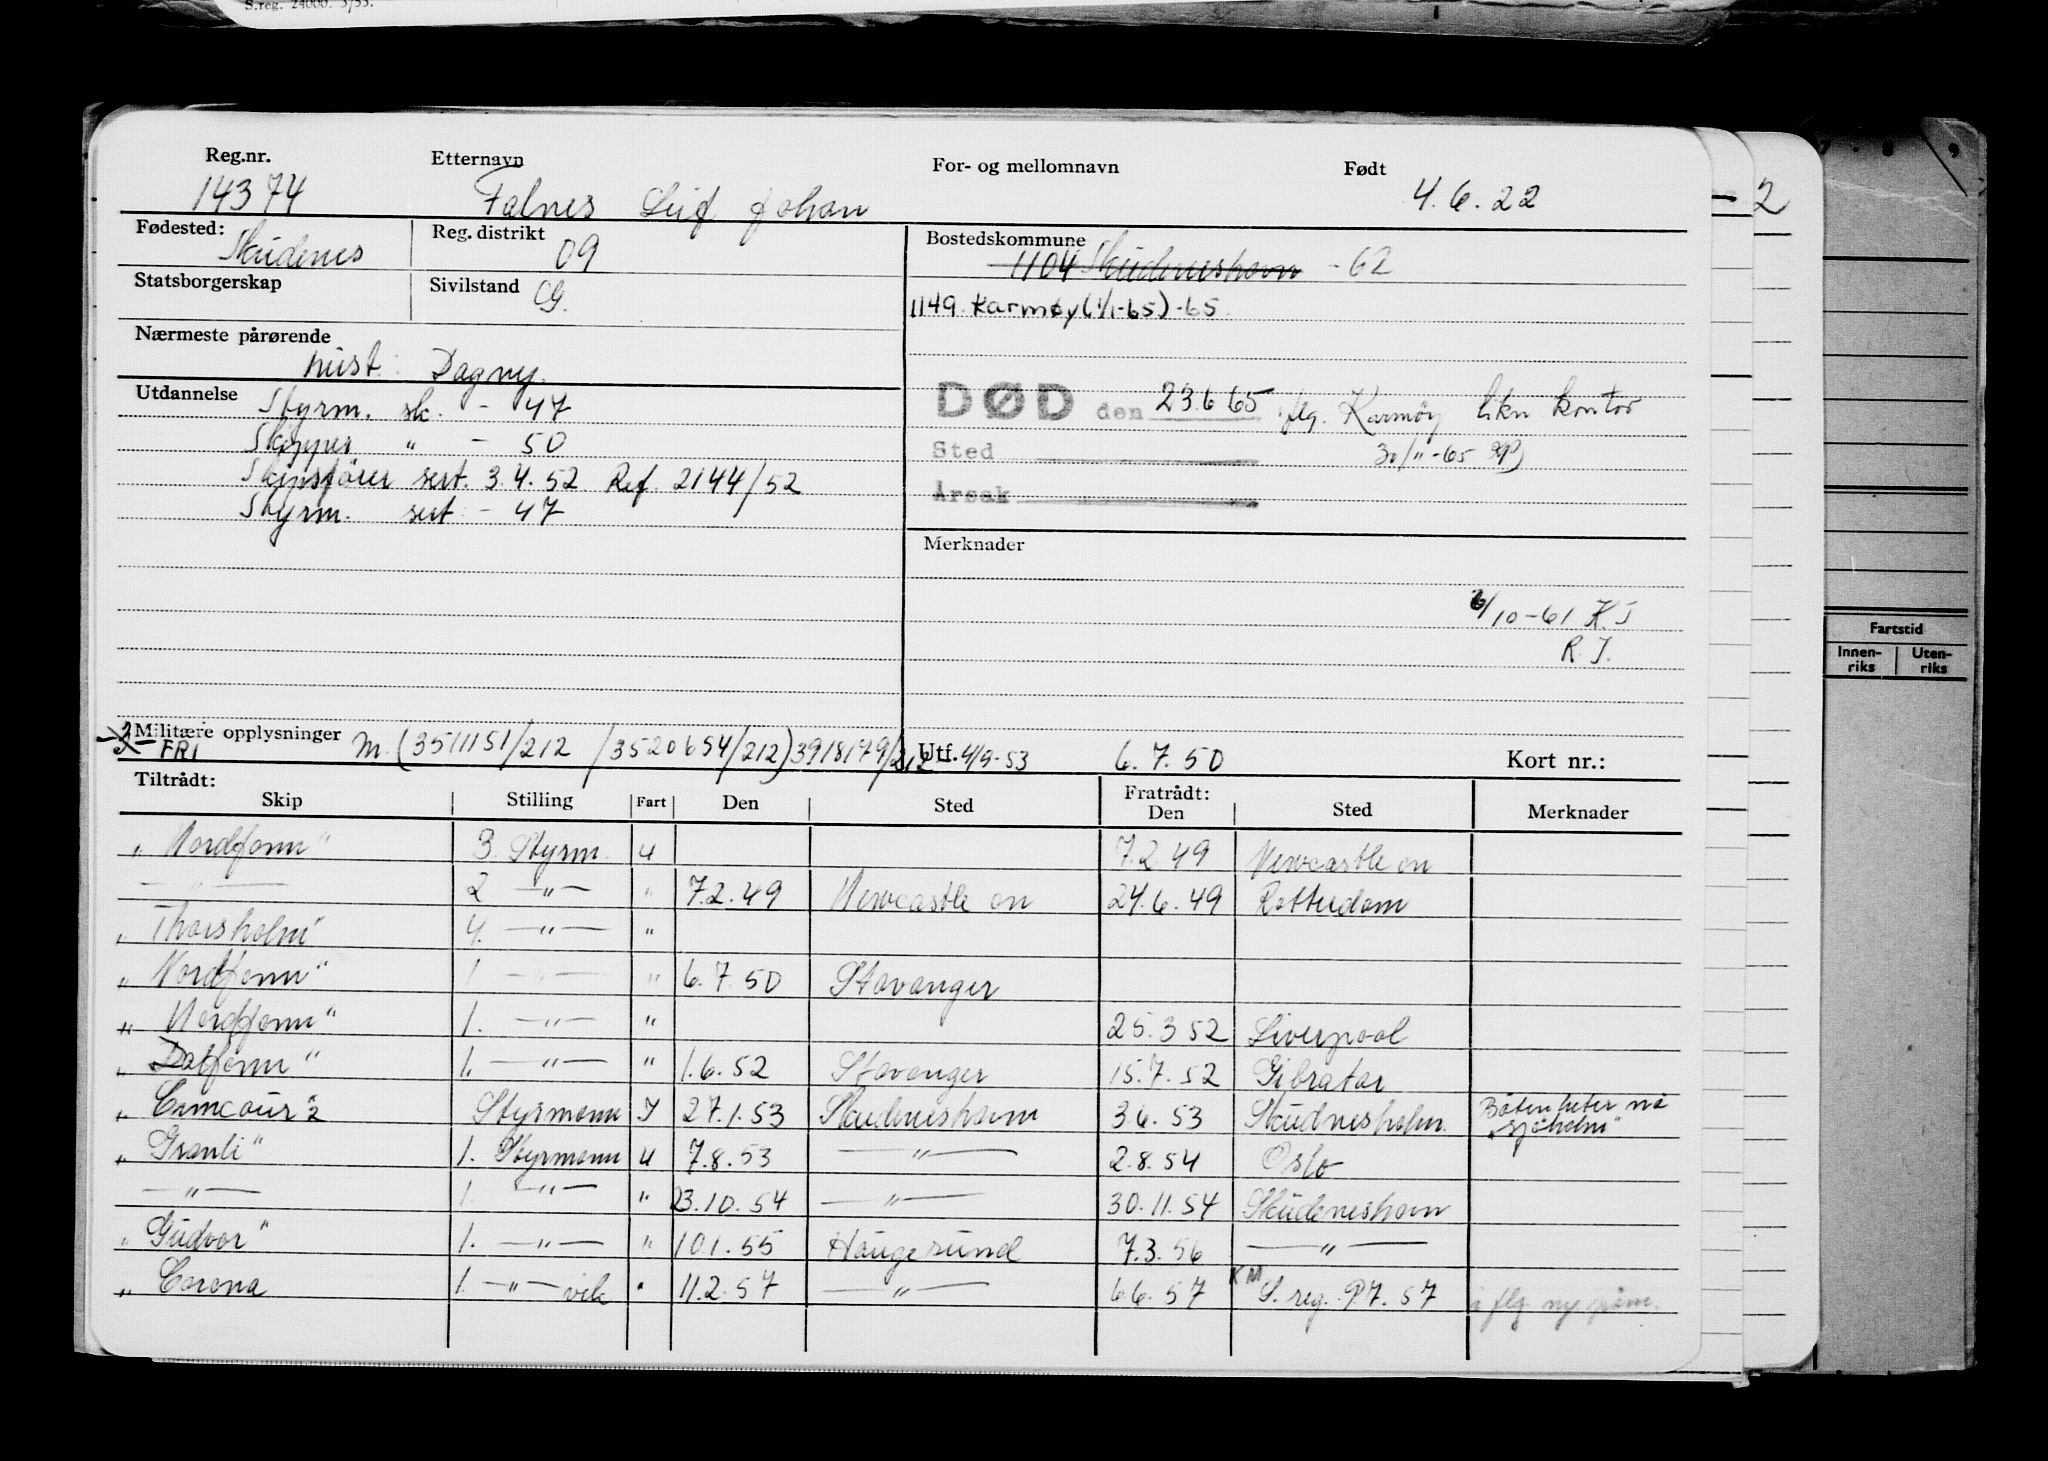 S.reg. 24000. 3/53.
Reg.nr. Etternavn For- og mellomnavn Født
14374 Falnes Leif Johan 4.6.22
2
Fødested: Skudenes Reg. distrikt 09 Bostedskommune
1104 Skudeneshavn - 62
Statsborgerskap Sivilstand G.
1149 Karmøy (1/1-65) -65
Nærmeste pårørende
hust: Dagny.
Utdannelse Styrm. sk. - 47
DØD den 23.6 65 flg. Karmøy likn kontor
Skipper " - 50
Sted 30/11-65
Skipsfører sert. 3.4.52 Ref. 2144/52
Årsak
Styrm. sert - 47
Merknader
6/10-61 K.J
R.J.
Fartstid
Innen-riks Uten-riks
Militære opplysninger
FRI M (3511151/212 /3520654/212) 3918179/212 Utf. 4/9-53 6.7.50 Kort nr.:
Tiltrådt: Fratrådt:
Skip Stilling Fart Den Sted Den Sted Merknader
"Nordfonn" 3. Styrm. U 7.2.49 Newcastle on
— " — 2 — " — " 7.2.49 Newcastle on 24.6.49 Rotterdam
"Thorsholm" 4. — " — "
"Nordfonn" 1. — " — " 6.7.50 Stavanger
"Nordfonn" 1. — " — " 25.3 52 Liverpool
"Dalfonn" 1. — " — " 1.6.52 Stavanger 15.7.52 Gibratar
Styrmann I 27.1.53 Skudeneshavn 3.6.53 Skudnesholm. Båten heter nå
"Sjøholm"
"Granli" 1. Styrmann U 7.8.53 — " — 2.8.54 Oslo
— " — 1. — " — " 23.10.54 — " — 30.11.54 Skudeneshavn
"Gudvor" 1. — " — " 10.1.55 Haugesund 7.3.56 — " —
"Corona 1. — " — vik " 11.2.57 — " — 6.6.57 KM S. reg. 7.57 flg. ny